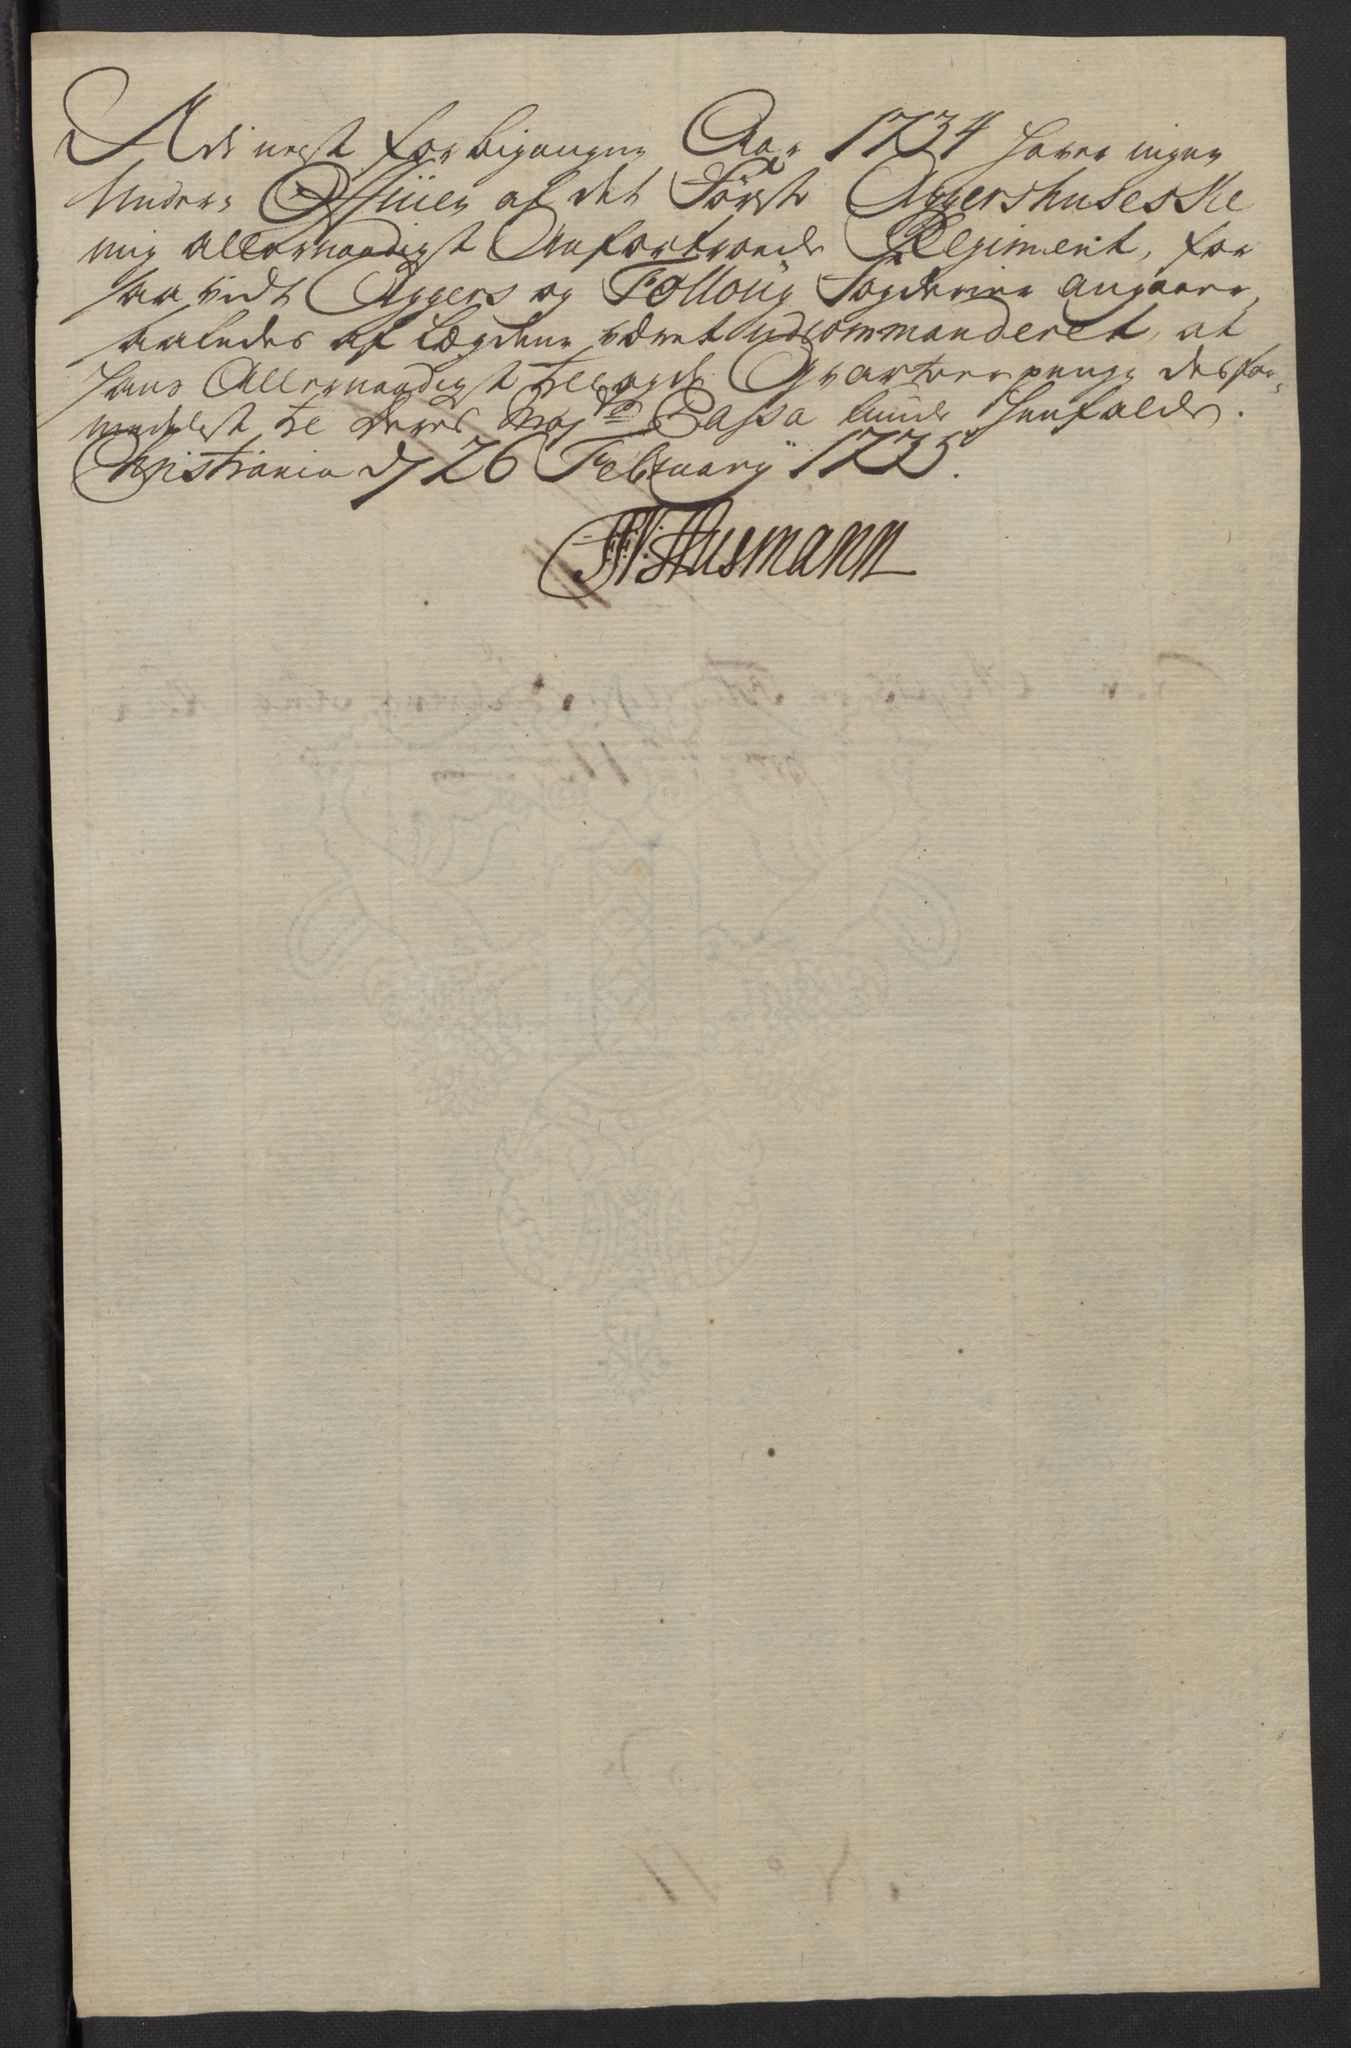 Udi nest forbigangne Aar 1734 haver ingen
Under: Officier af det Første Aggershusesske
mig allernaadigst Anfortroede Regiment, for
saa vidt Aggers og Folloug Fogderier angaaer,
saaledes af Lægdene været udcommanderet, at
hans Allernaadigst tillagde Qvarteerpenge desfor-
medelst til deres Mayts Cassa kunde henfalde.
Christiania d 26 February 1735.
FV: Husmann